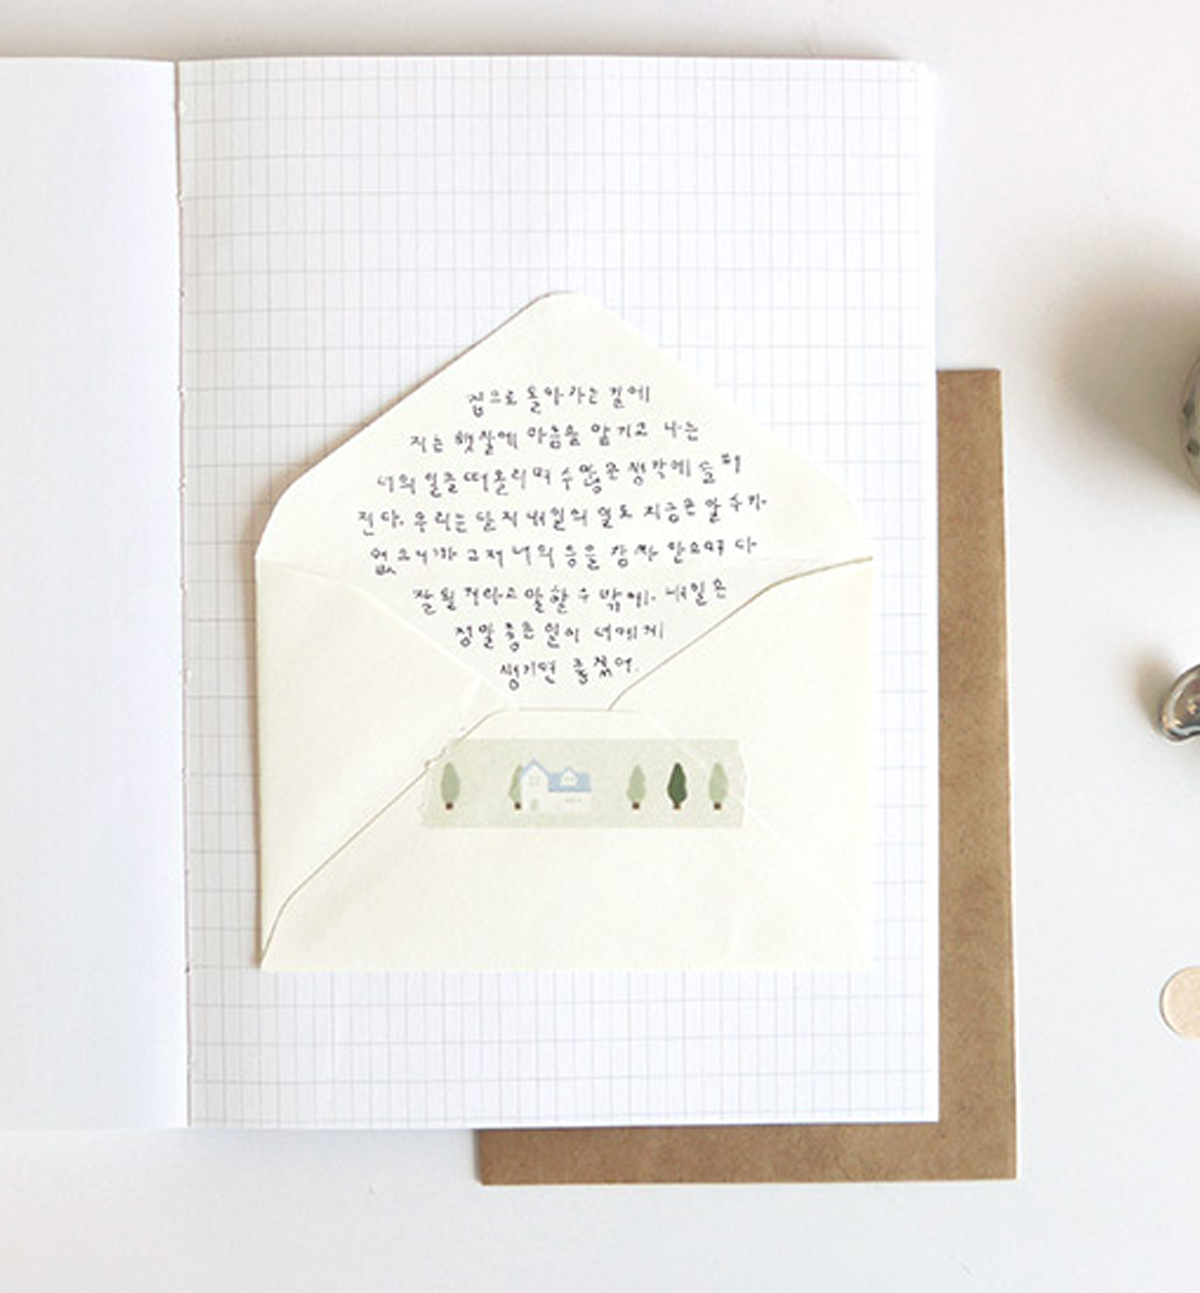 집으로 돌아가는 길에
지는 햇살에 마음을 맡기고 나는
너의 일을 떠올리며 수많은 생각에 슬퍼
진다. 우리는 단지 내일의 일도 지금은 알 수가
없으니까 그저 너의 등을 감싸 안으며 다
잘될 거라고 말할 수밖에. 내일은
정말 좋은 일이 너에게
생기면 좋겠어.